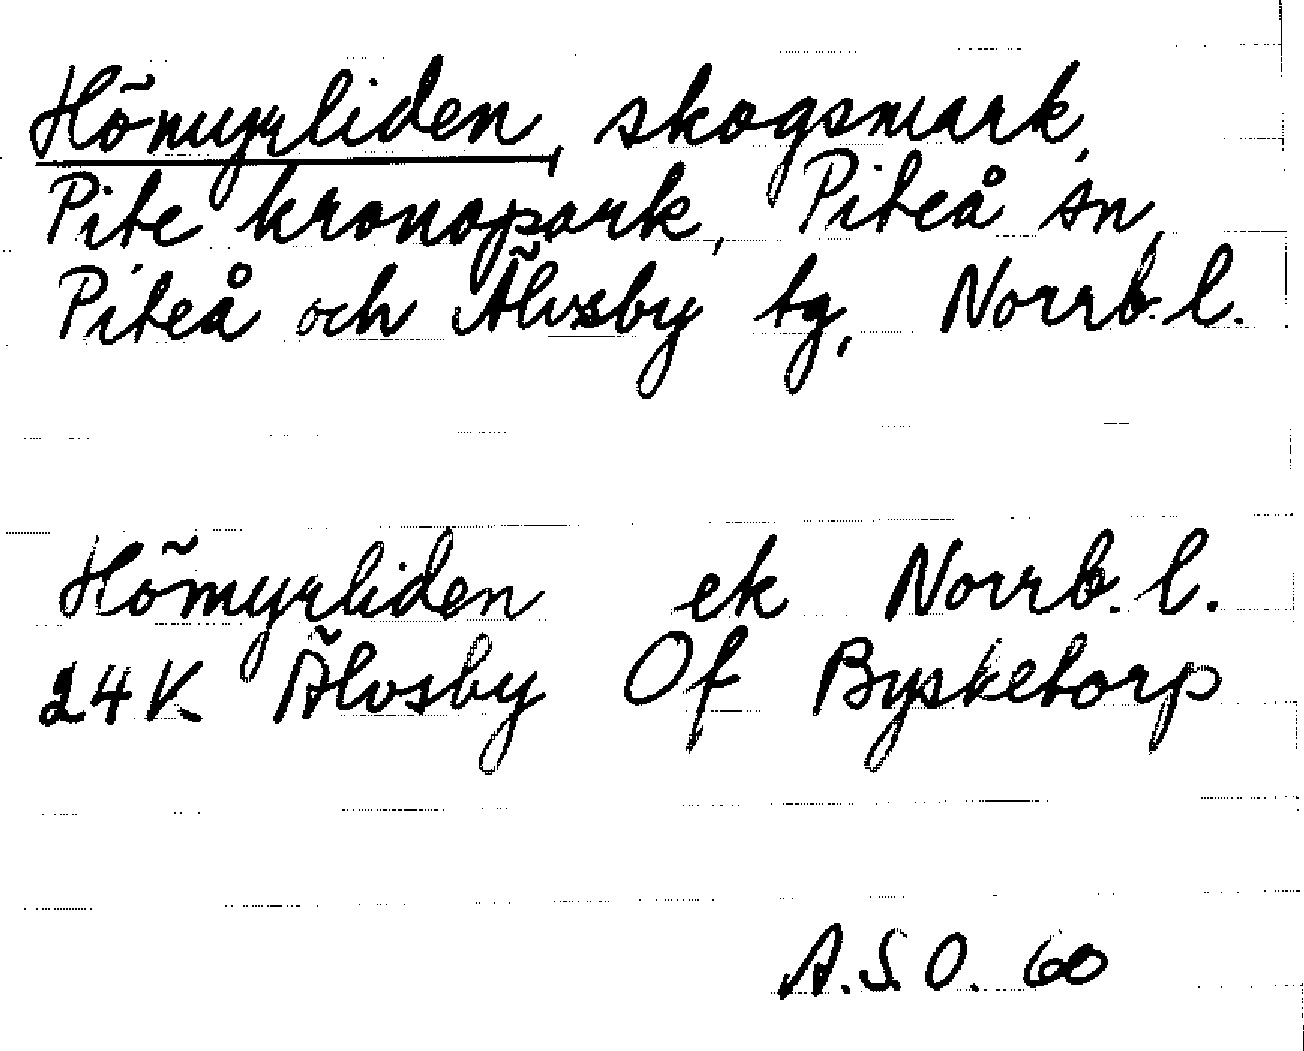 Hömyrliden, skogsmark,
Pite kronopark, Piteå sn,
Piteå och Älvsby tg, Norrb. l.
Hömyrliden ek Norrb. l.
24K Älvsby Of Bysketorp
A.S.O. 60